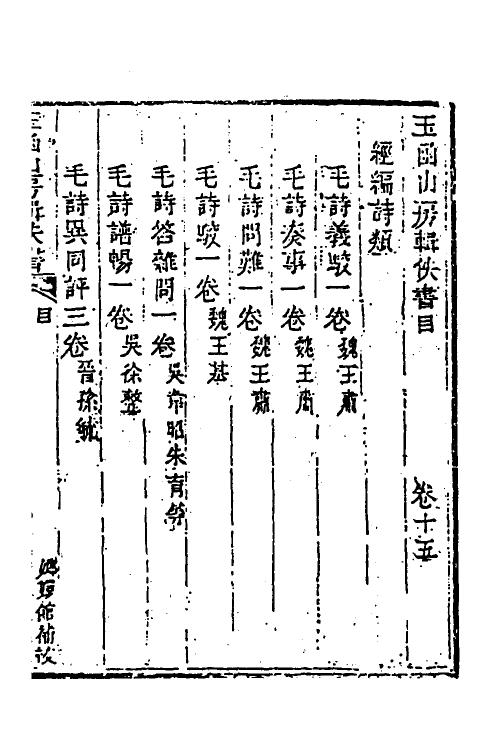 玉函山房輯佚書目 卷十五
經編詩類
毛詩義駮一卷 魏王肅
毛詩奏事一卷 魏王肅
毛詩問難一卷 魏王肅
毛詩駮一卷 魏王基
毛詩答雜問一卷 吳韋昭朱育等
毛詩譜暢一卷 吳徐整
毛詩異同評三卷 晉孫毓
玉函山房輯佚書 目